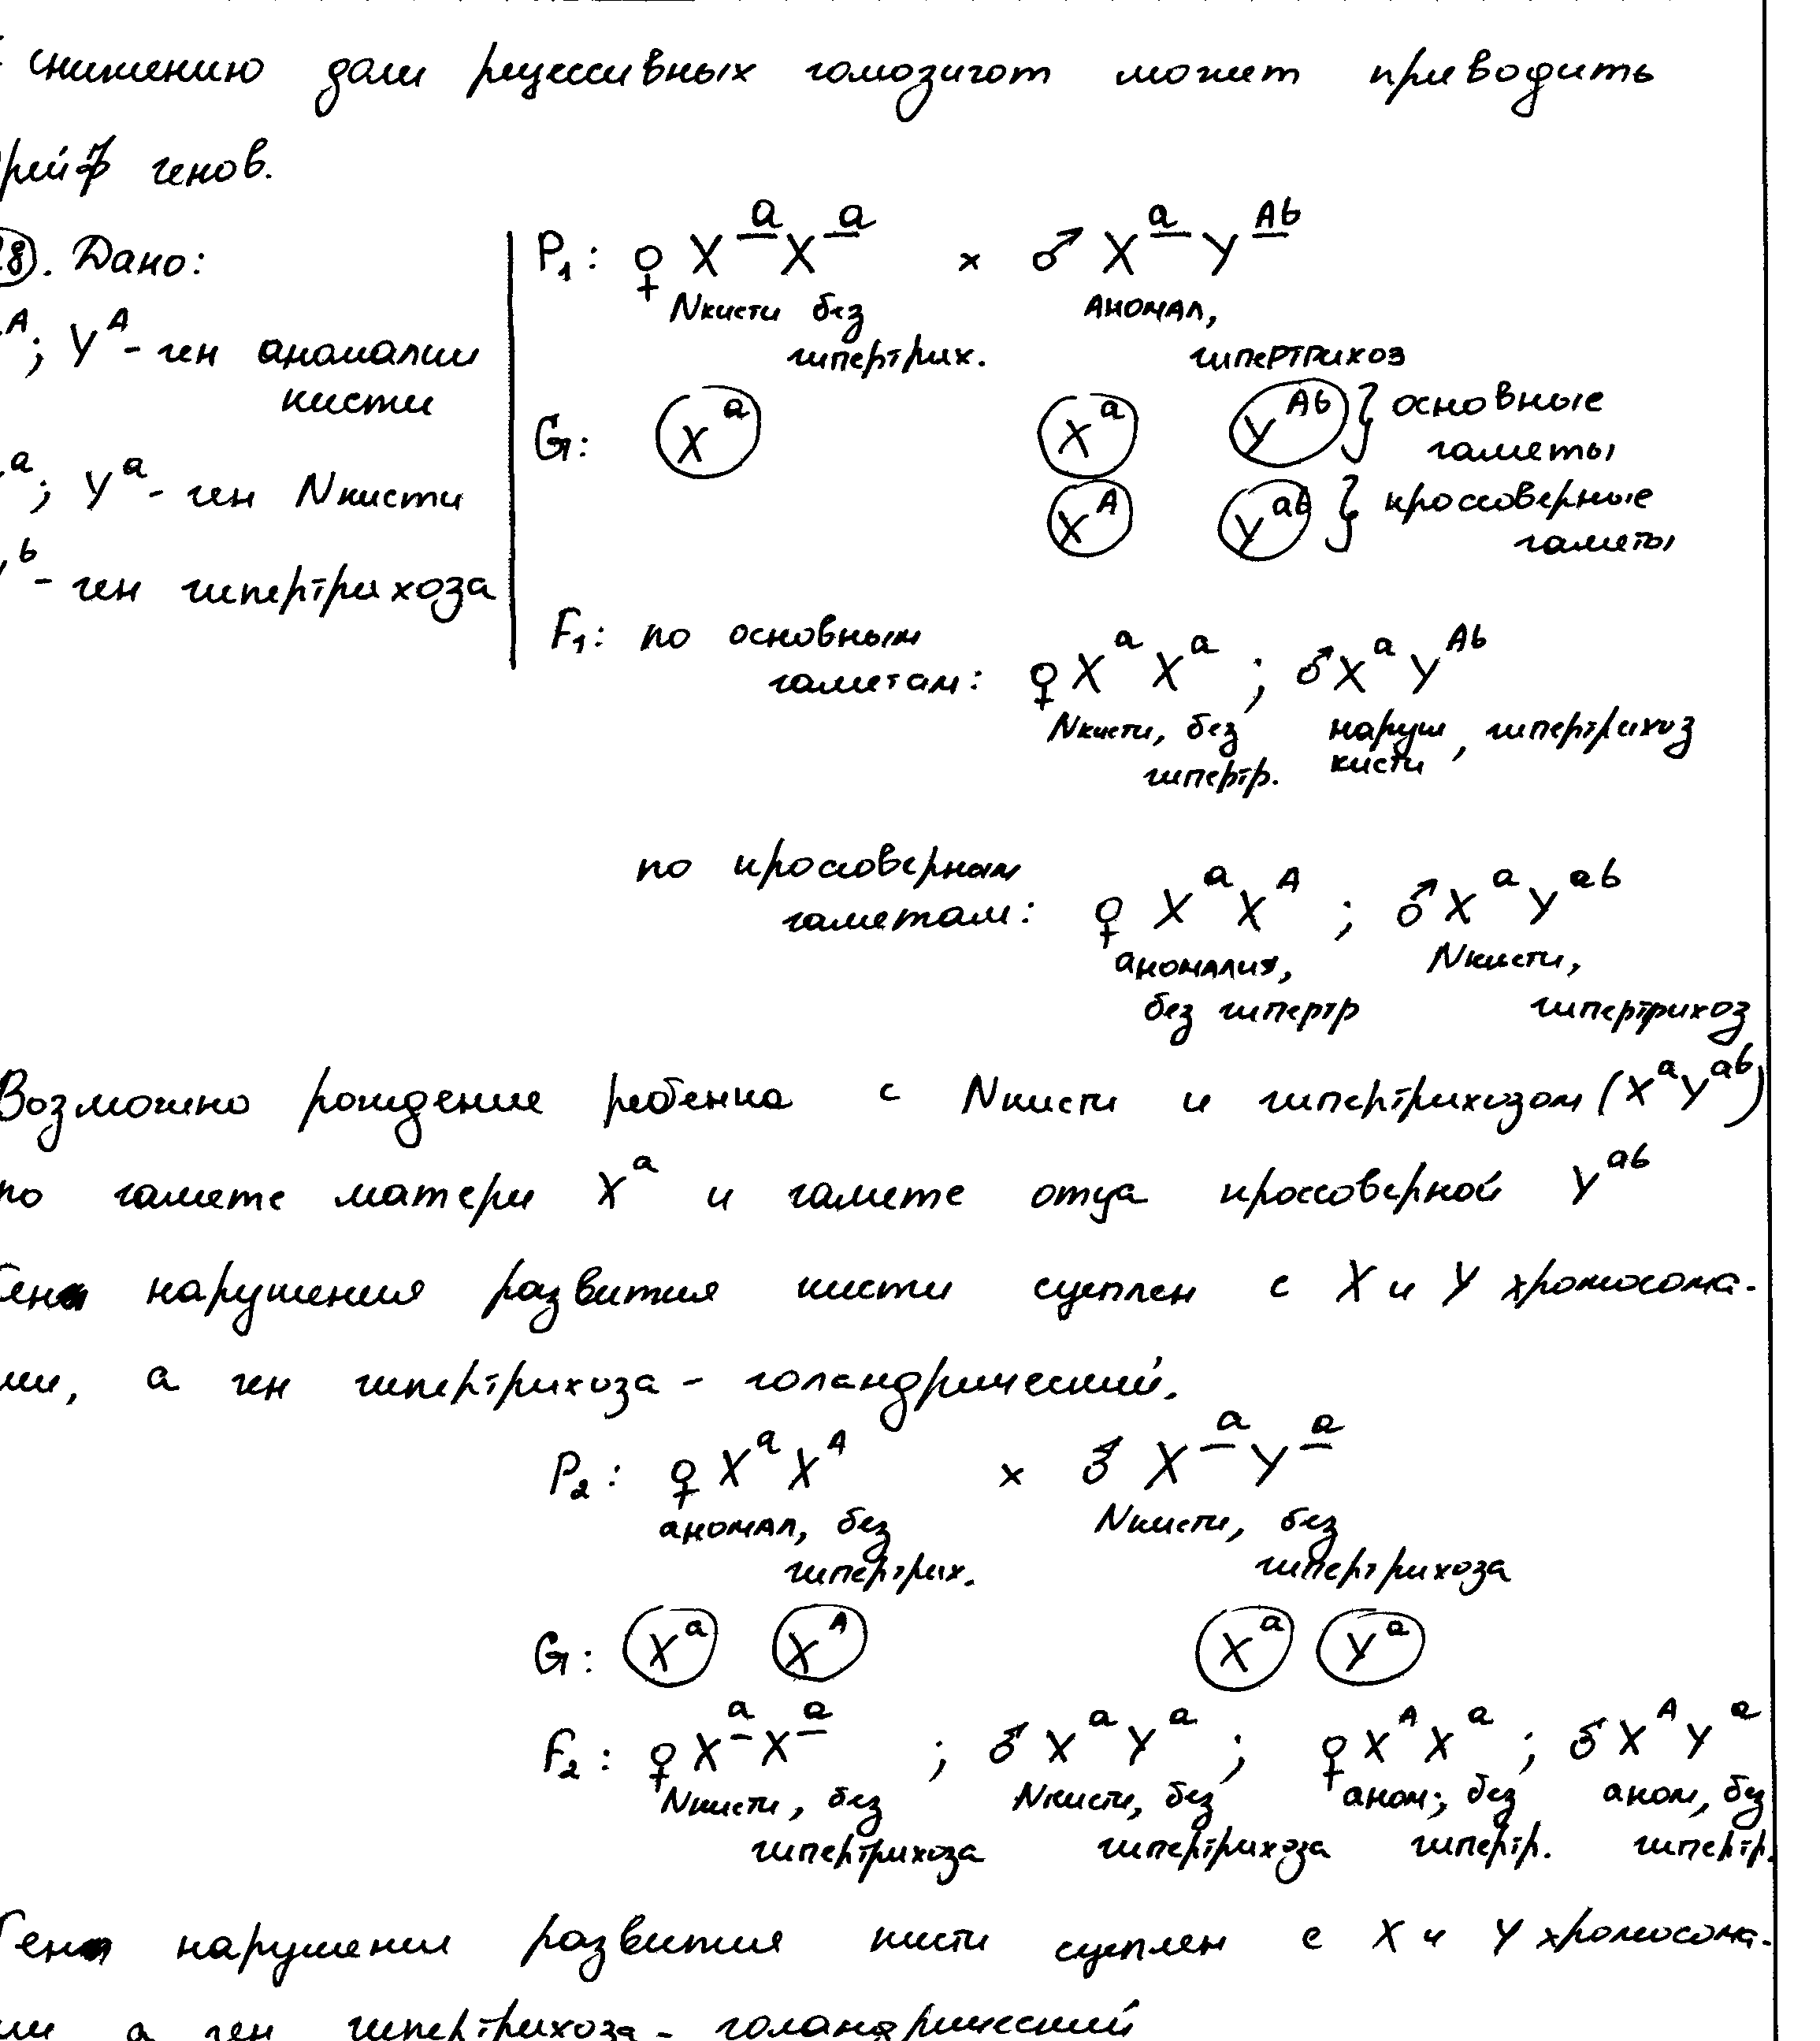 снижению доли рецессивных гомозигот может приводить
рейф генов.
28. Дано:
P₁: ♀ X^a X^a × ♂ X^a Y^Ab
Nкисти без гипертрих. аномал, гипертрихоз
A; Y^A - ген аномалии кисти
a; Y^a - ген Nкисти
b - ген гипертрихоза
G: X^a X^a Y^Ab } основные гаметы
X^A Y^ab } кроссоверные гаметы
F₁: по основным гаметам: ♀ X^a X^a ; ♂ X^a Y^Ab
Nкисти, без гипертр. наруш кисти, гипертрихоз
по кроссоверным гаметам: ♀ X^a X^A ; ♂ X^a Y^ab
аномалия, без гипертр Nкисти, гипертрихоз
Возможно рождение ребенка с Nкисти и гипертрихозом (X^a Y^ab)
по гамете матери X^a и гамете отца кроссоверной Y^ab
Ген нарушения развития кисти сцеплен с X и Y хромосома-
ми, а ген гипертрихоза - голандрический.
P₂: ♀ X^a X^A × ♂ X^a Y^a
аномал, без гипертрих. Nкисти, без гипертрихоза
G: X^a X^A X^a Y^a
F₂: ♀ X^a X^a ; ♂ X^a Y^a ; ♀ X^A X^a ; ♂ X^A Y^a
Nкисти, без гипертрихоза Nкисти, без гипертрихоза аном, без гипертр. аном, без гипертр.
Ген нарушении развития кисти сцеплен с X и Y хромосома-
ми а ген гипертрихоза - голандрический